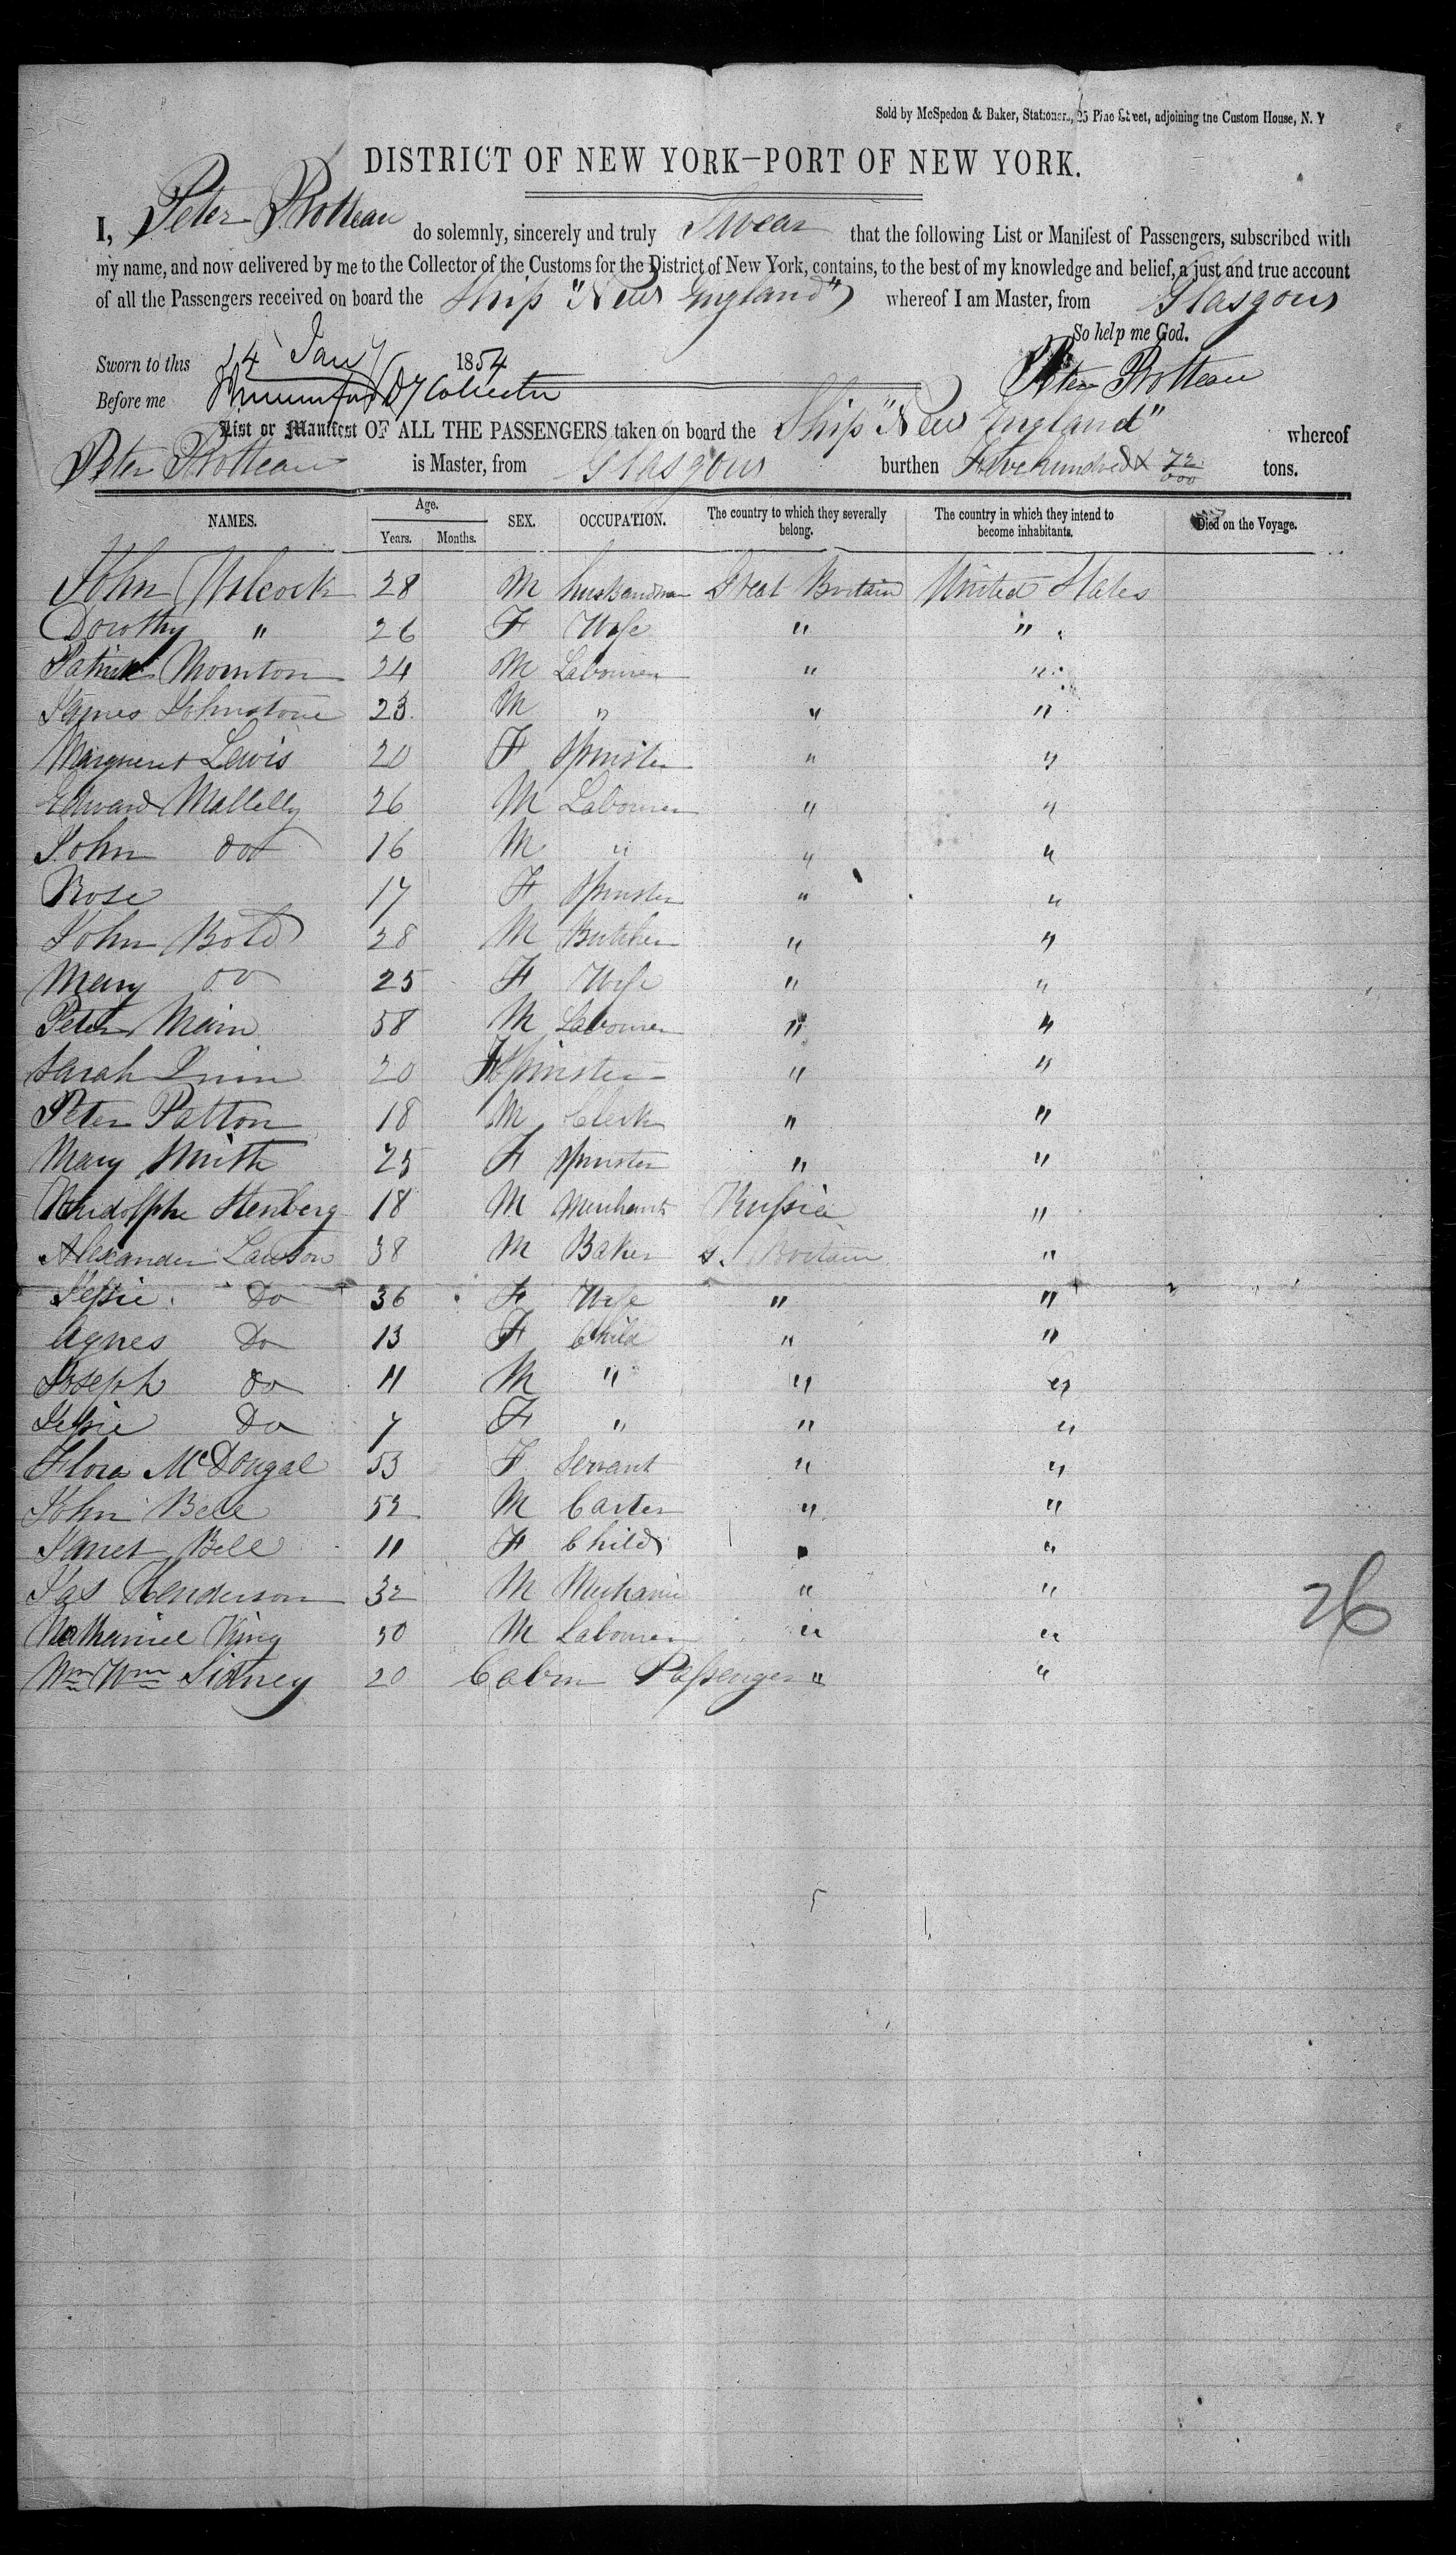 Sold by McSpedon & Baker, Stationers, 25 Pine Street, adjoining the Custom House, N. Y
DISTRICT OF NEW YORK—PORT OF NEW YORK.
I, Peter do solemnly, sincerely and truly Swear that the following List or Manifest of Passengers, subscribed with
my name, and now delivered by me to the Collector of the Customs for the District of New York, contains, to the best of my knowledge and belief, a just and true account
of all the Passengers received on board the Ship "New England" whereof I am Master, from Glasgow
So help me God.
Sworn to this 14 Jany 1854 Peter
Before me Dy Collector
List or Manifest OF ALL THE PASSENGERS taken on board the Ship "New England" whereof
Peter is Master, from Glasgow burthen Five hundred & 72/000 tons.
NAMES. Age. Years. Months. SEX. OCCUPATION. The country to which they severally belong. The country in which they intend to become inhabitants. Died on the Voyage.
John Wilcock 28 M husbandman Great Britain United States
Dorothy " 26 F Wife " "
Patrick Thornton 24 M Labourer " "
James Johnstone 23 M " " "
Margueret Lewis 20 F Spinster " "
Edward Mallelly 26 M Labourer " "
John do 16 M " " "
Rose 17 F Spinster " "
John Bold 28 M Butcher " "
Mary do 25 F Wife " "
Peter Main 58 M Labourer " "
Sarah Quin 20 F Spinster " "
Peter Patton 18 M Clerk " "
Mary Smith 25 F Spinster " "
Rudolphe Stenberg 18 M Merchant Russia "
Alexander Lawson 38 M Baker G. Britain "
Jessie Do 36 F Wife " "
Agnes Do 13 F Child " "
Joseph do 11 M " " "
Jessie Do 7 F " " "
Flora McDougal 53 F Servant " "
John Bell 52 M Carter " "
Janet Bell 11 F Child " "
Jas Henderson 32 M Mechanic " "
Nathaniel King 30 M Labourer " "
Wm Sidney 20 Cabin Passenger " "
26